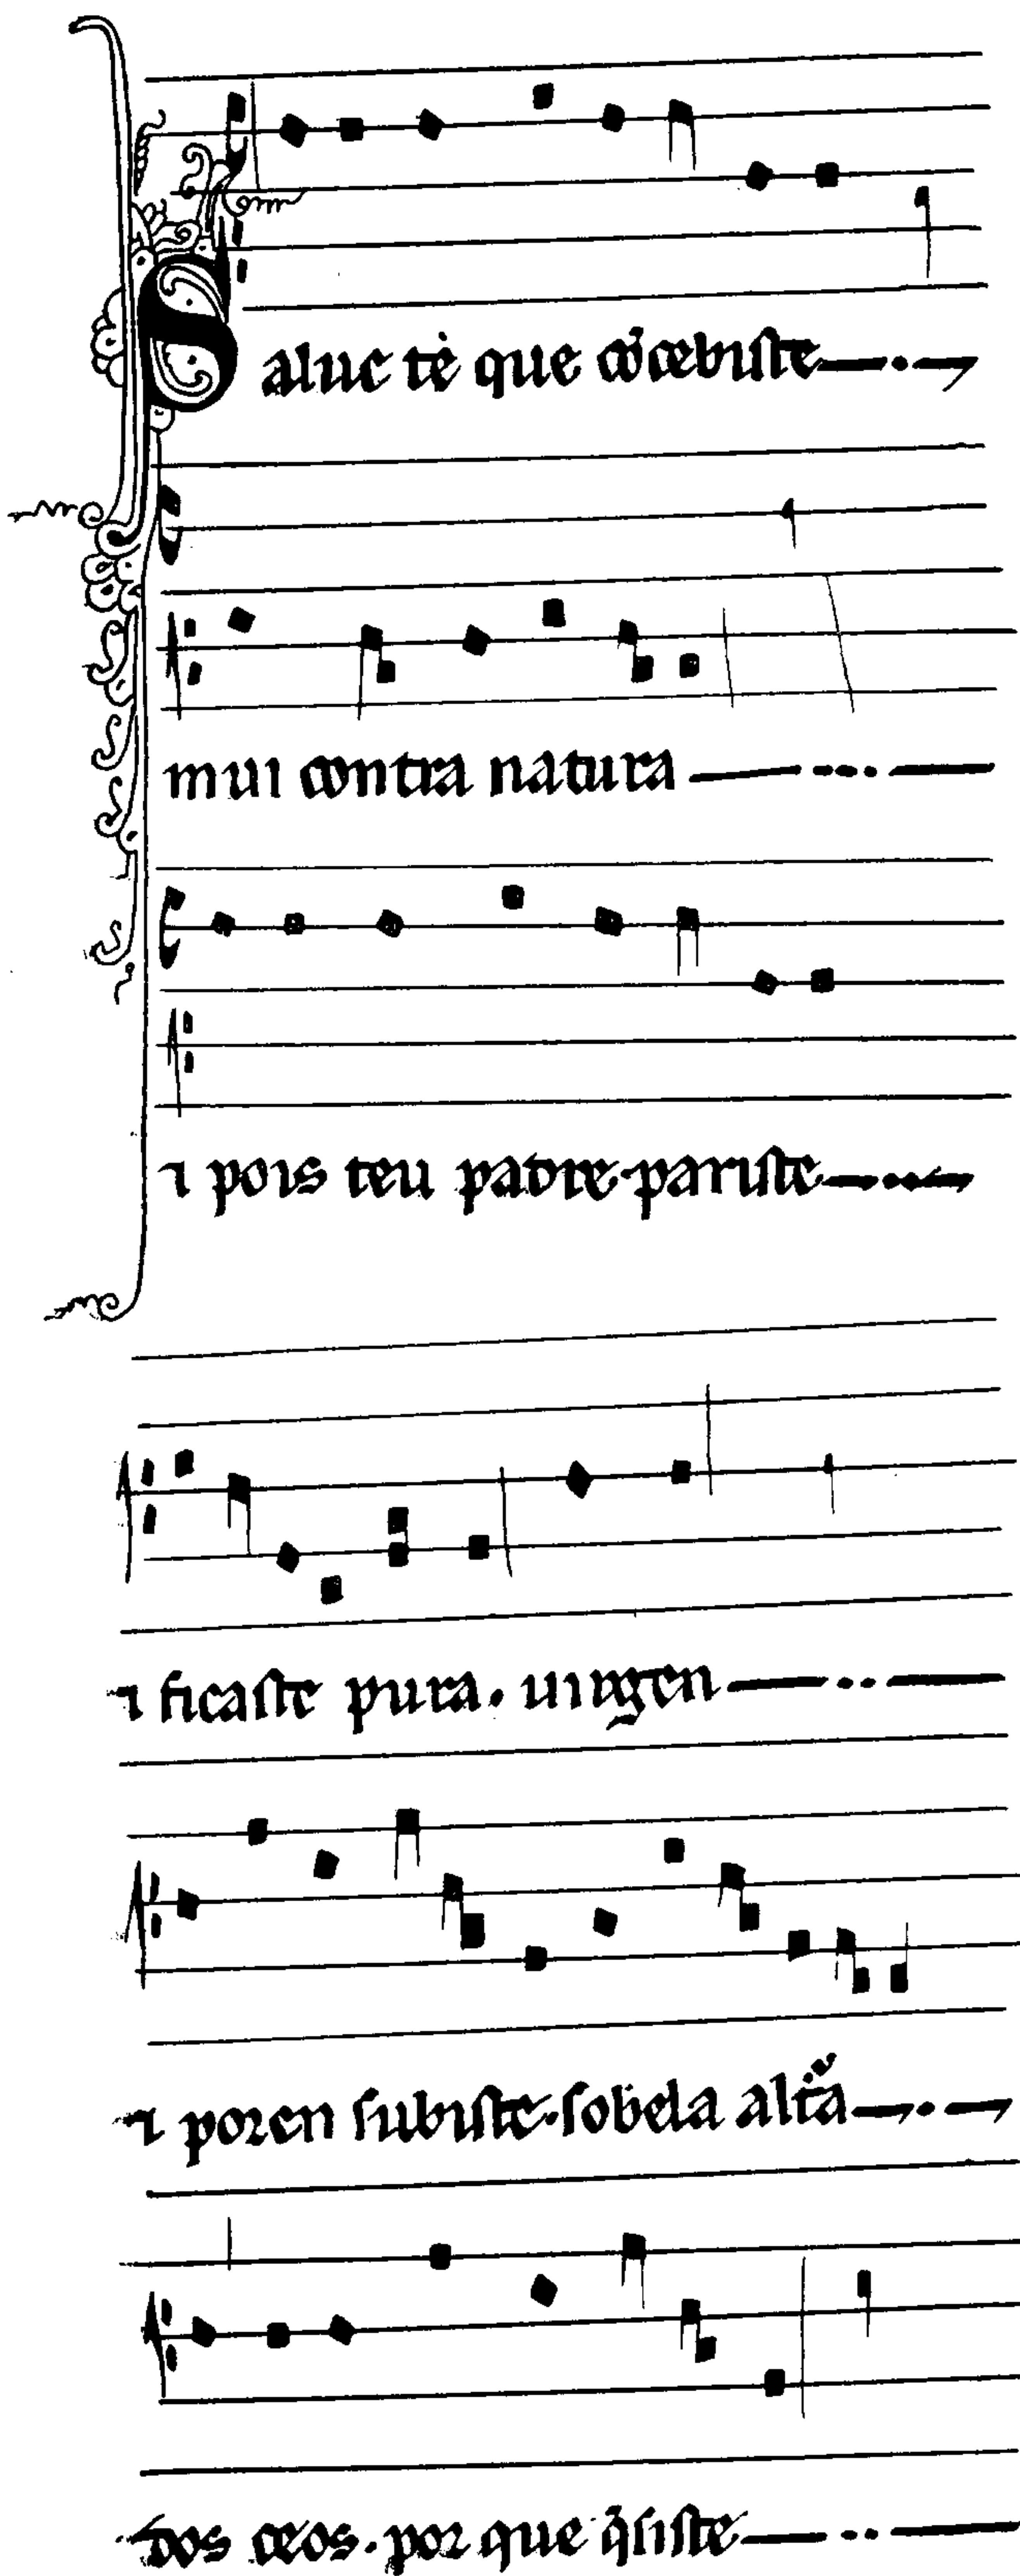 Salue te que cõcebiste
mui contra natura
⁊ pois teu padre · pariste
⁊ ficaste pura · uirgen
⁊ poren subiste · sobela alt̃a
dos ceos · por que q̃siste